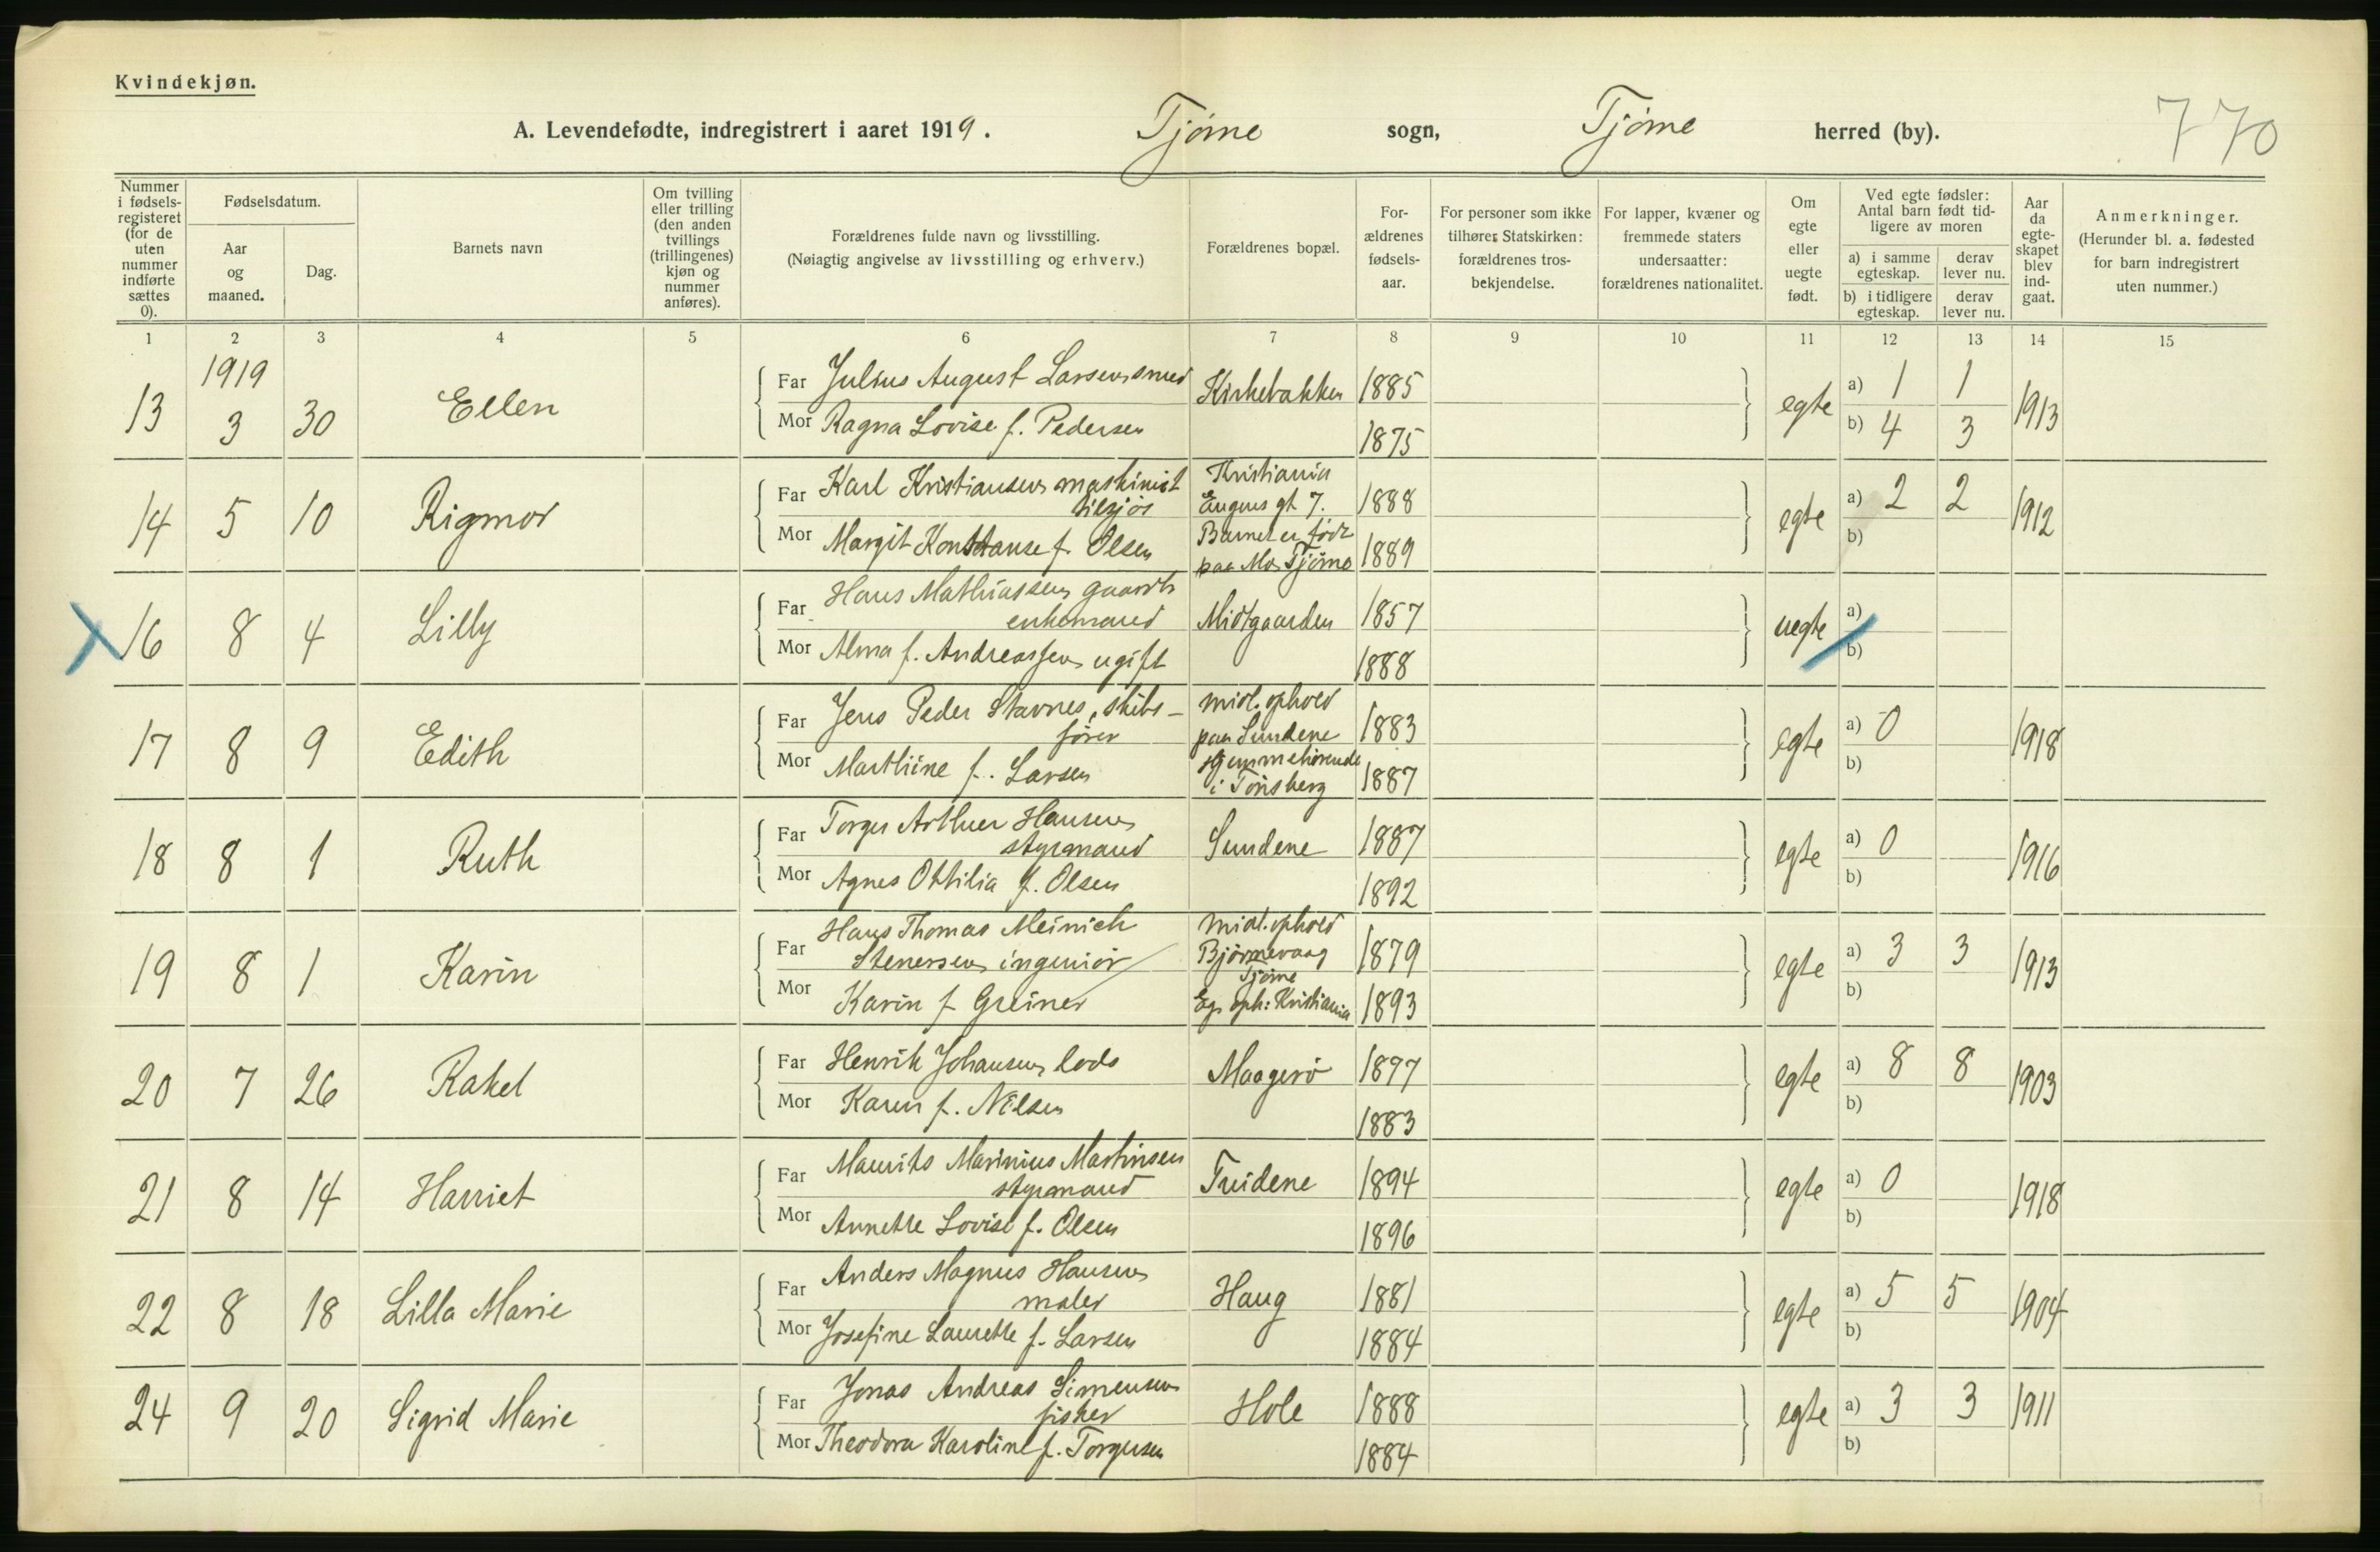 Kvindekjøn.
A. Levendefødte, indregistrert i aaret 1919. Tjøme sogn, Tjøme herred (by). 770
Nummer i fødselsregisteret (for de uten nummer indførte sættes 0).
Fødselsdatum.
Aar og maaned.
Dag.
Barnets navn
Om tvilling eller trilling (den anden tvillings (trillingenes) kjøn og nummer anføres).
Forældrenes fulde navn og livsstilling.
(Nøiagtig angivelse av livsstilling og erhverv.)
Forældrenes bopæl.
Forældrenes fødselsaar.
For personer som ikke tilhører Statskirken: forældrenes trosbekjendelse.
For lapper, kvæner og fremmede staters undersaatter: forældrenes nationalitet.
Om egte eller uegte født.
Ved egte fødsler: Antal barn født tidligere av moren
a) i samme egteskap. derav lever nu.
b) i tidligere egteskap. derav lever nu.
Aar da egteskapet blev indgaat.
Anmerkninger.
(Herunder bl. a. fødested for barn indregistrert uten nummer.)
1 2 3 4 5 6 7 8 9 10 11 12 13 14 15
1919
13 3 30 Ellen Far Julius August Larsen, smed Kirkebakken 1885 egte a) 1 1 1913
Mor Ragna Lovise f. Pedersen 1875 b) 4 3
14 5 10 Rigmor Far Karl Kristiansen maskinist tilsjøs Kristiania Eugens gt 7. 1888 egte a) 2 2 1912
Mor Margit Konstanse f. Olsen Barnet er født paa Mo, Tjøme 1889 b)
16 8 4 Lilly Far Hans Mathiassen gaardb enkemand Midtgaarden 1857 uegte a)
Mor Alma f. Andreassen ugift 1888 b)
17 8 9 Edith Far Jens Peder Stavnes, skibsfører midl. ophold paa Sundene 1883 egte a) 0 1918
Mor Marthine f. Larsen Hjemmehørende i Tønsberg 1887 b)
18 8 1 Ruth Far Torger Arthur Hansen styrmand Sundene 1887 egte a) 0 1916
Mor Agnes Othilia f. Olsen 1892 b)
19 8 1 Karin Far Hans Thomas Meinich Stenersen ingeniør midl. ophold Bjørnevaag Tjøme 1879 egte a) 3 3 1913
Mor Karin f Greiner Eg. oph: Kristiania 1893 b)
20 7 26 Rakel Far Henrik Johansen, lods Maagerø 1897 egte a) 8 8 1903
Mor Karen f. Nilsen 1883 b)
21 8 14 Harriet Far Maurits Marinius Martinsen styrmand 1894 egte a) 0 1918
Mor Annette Lovise f. Olsen 1896 b)
22 8 18 Lilla Marie Far Anders Magnus Hansen maler Haug 1881 egte a) 5 5 1904
Mor Josefine Laurette f. Larsen 1884 b)
24 9 20 Sigrid Marie Far Jonas Andreas Simensen fisker Hole 1888 egte a) 3 3 1911
Mor Theodora Karoline f. Torgersen 1884 b)